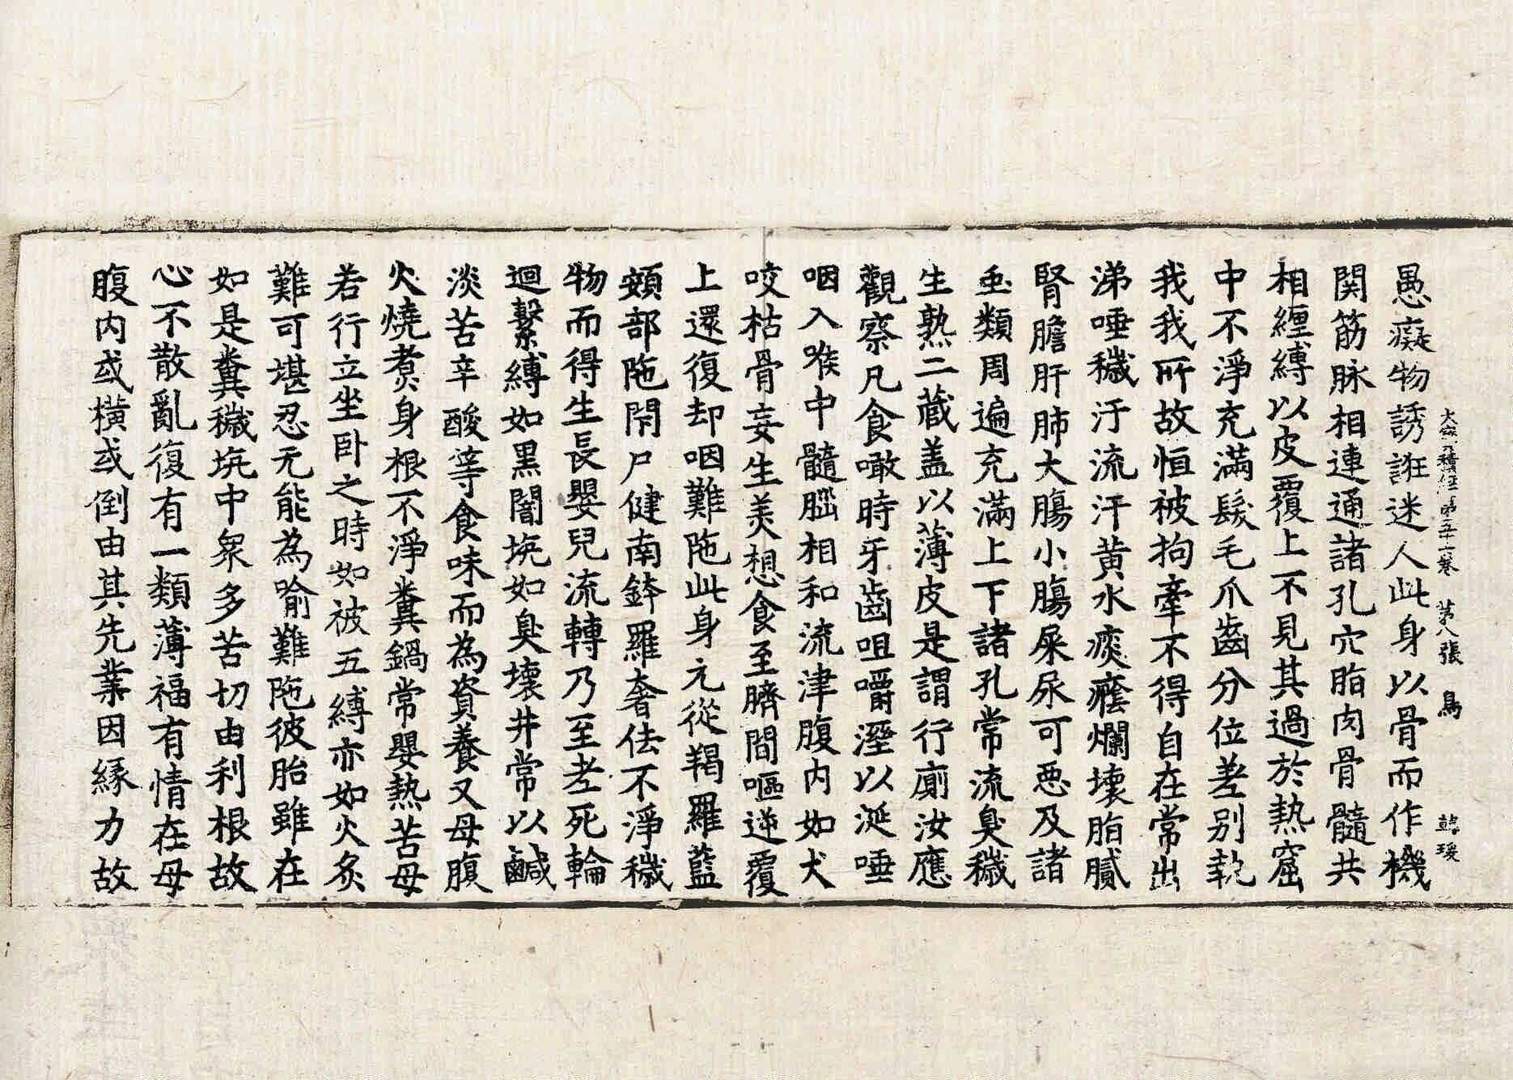 大寶積經第五十一卷　第八張　鳥　韓瑗
愚癡物誘誑迷人此身以骨而作機
関筋脉相連通諸孔穴脂肉骨髓共
相纏縛以皮覆上不見其過於熱窟
中不淨充滿髮毛爪齒分位差别執
我我所故恒被拘牽不得自在常出
涕唾穢汙流汗黄水痰癊爛壞脂膩
腎膽肝肺大膓小膓屎尿可惡及諸
虫類周遍充滿上下諸孔常流臭穢
生熟二藏盖以薄皮是謂行廁汝應
觀察凡食噉時牙齒咀嚼溼以涎唾
咽入喉中髓腦相和流津腹内如犬
咬枯骨妄生美想食至臍間嘔逆覆
上還復却咽難陁此身元從羯羅藍
頞部陁閇尸健南鉢羅奢佉不淨穢
物而得生長嬰兒流轉乃至老死輪
迴繫縛如黑闇坑如臭壞井常以鹹
淡苦辛酸等食味而為資養又母腹
火燒煑身根不淨糞鍋常嬰熱苦母
若行立坐卧之時如被五縛亦如火炙
難可堪忍无能為喻難陁彼胎雖在
如是糞穢坑中衆多苦切由利根故
心不散亂復有一類薄福有情在母
腹内或横或倒由其先業因緣力故